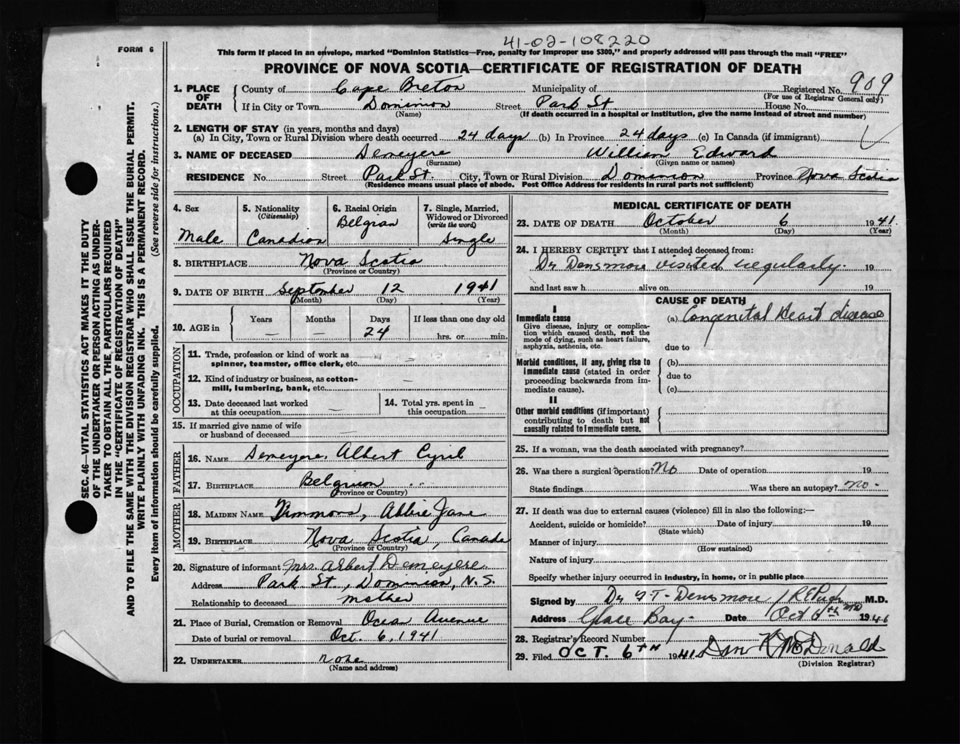 41-02-108220
FORM 6
This form if placed in an envelope, marked "Dominion Statistics—Free, penalty for improper use $300," and properly addressed will pass through the mail "FREE"
PROVINCE OF NOVA SCOTIA—CERTIFICATE OF REGISTRATION OF DEATH
SEC. 46—VITAL STATISTICS ACT MAKES IT THE DUTY
OF THE UNDERTAKER OR PERSON ACTING AS UNDER-
TAKER TO OBTAIN ALL THE PARTICULARS REQUIRED
IN THE "CERTIFICATE OF REGISTRATION OF DEATH"
AND TO FILE THE SAME WITH THE DIVISION REGISTRAR WHO SHALL ISSUE THE BURIAL PERMIT.
WRITE PLAINLY WITH UNFADING INK. THIS IS A PERMANENT RECORD.
Every item of Information should be carefully supplied. (See reverse side for instructions.)
1. PLACE OF DEATH
County of Cape Breton Municipality of Registered No. 909
(For use of Registrar General only)
If in City or Town Dominion Street Park St. House No.
(Name) (If death occurred in a hospital or institution, give the name instead of street and number)
2. LENGTH OF STAY (in years, months and days)
(a) In City, Town or Rural Division where death occurred 24 days (b) In Province 24 days (c) In Canada (if immigrant)
3. NAME OF DECEASED Demeyere William Edward
(Surname) (Given name or names)
RESIDENCE No. Street Park St. City, Town or Rural Division Dominion Province Nova Scotia
(Residence means usual place of abode. Post Office Address for residents in rural parts not sufficient)
4. Sex
Male
5. Nationality
(Citizenship)
Canadian
6. Racial Origin
Belgian
7. Single, Married,
Widowed or Divorced
(write the word)
Single
8. BIRTHPLACE Nova Scotia
(Province or Country)
9. DATE OF BIRTH September 12 1941
(Month) (Day) (Year)
10. AGE in
Years Months Days If less than one day old
— — 24 hrs. or min.
OCCUPATION
11. Trade, profession or kind of work as
spinner, teamster, office clerk, etc. —
12. Kind of industry or business, as cotton-
mill, lumbering, bank, etc. —
13. Date deceased last worked
at this occupation —
14. Total yrs. spent in
this occupation —
15. If married give name of wife
or husband of deceased —
FATHER
16. NAME Demeyere, Albert Cyril
17. BIRTHPLACE Belgium
(Province or Country)
MOTHER
18. MAIDEN NAME Timmons, Abbie Jane
19. BIRTHPLACE Nova Scotia, Canada
(Province or Country)
20. Signature of informant Mrs. Albert Demeyere
Address Park St., Dominion, N.S.
Relationship to deceased mother
21. Place of Burial, Cremation or Removal Ocean Avenue
Date of burial or removal Oct. 6, 1941
22. UNDERTAKER none
(Name and address)
MEDICAL CERTIFICATE OF DEATH
23. DATE OF DEATH October 6 1941
(Month) (Day) (Year)
24. I HEREBY CERTIFY that I attended deceased from:
Dr Densmore visited regularly. 19
and last saw h alive on 19
CAUSE OF DEATH
I
Immediate cause
Give disease, injury or complica-
tion which caused death, not the
mode of dying, such as heart failure,
asphyxia, asthenia, etc.
(a) Congenital Heart disease
due to
Morbid conditions, if any, giving rise to
immediate cause (stated in order
proceeding backwards from im-
mediate cause).
(b)
due to
(c)
II
Other morbid conditions (if important)
contributing to death but not
causally related to immediate cause.
25. If a woman, was the death associated with pregnancy?
26. Was there a surgical operation? No Date of operation 19
State findings Was there an autopsy? no-
27. If death was due to external causes (violence) fill in also the following:—
Accident, suicide or homicide? Date of injury 19
(State which)
Manner of injury
(How sustained)
Nature of injury
Specify whether injury occurred in industry, in home, or in public place
Signed by Dr G.T. Densmore M.D.
Address Glace Bay. Date Oct 1941
28. Registrar's Record Number
29. Filed OCT. 6TH 1941 Dan McDonald
(Division Registrar)